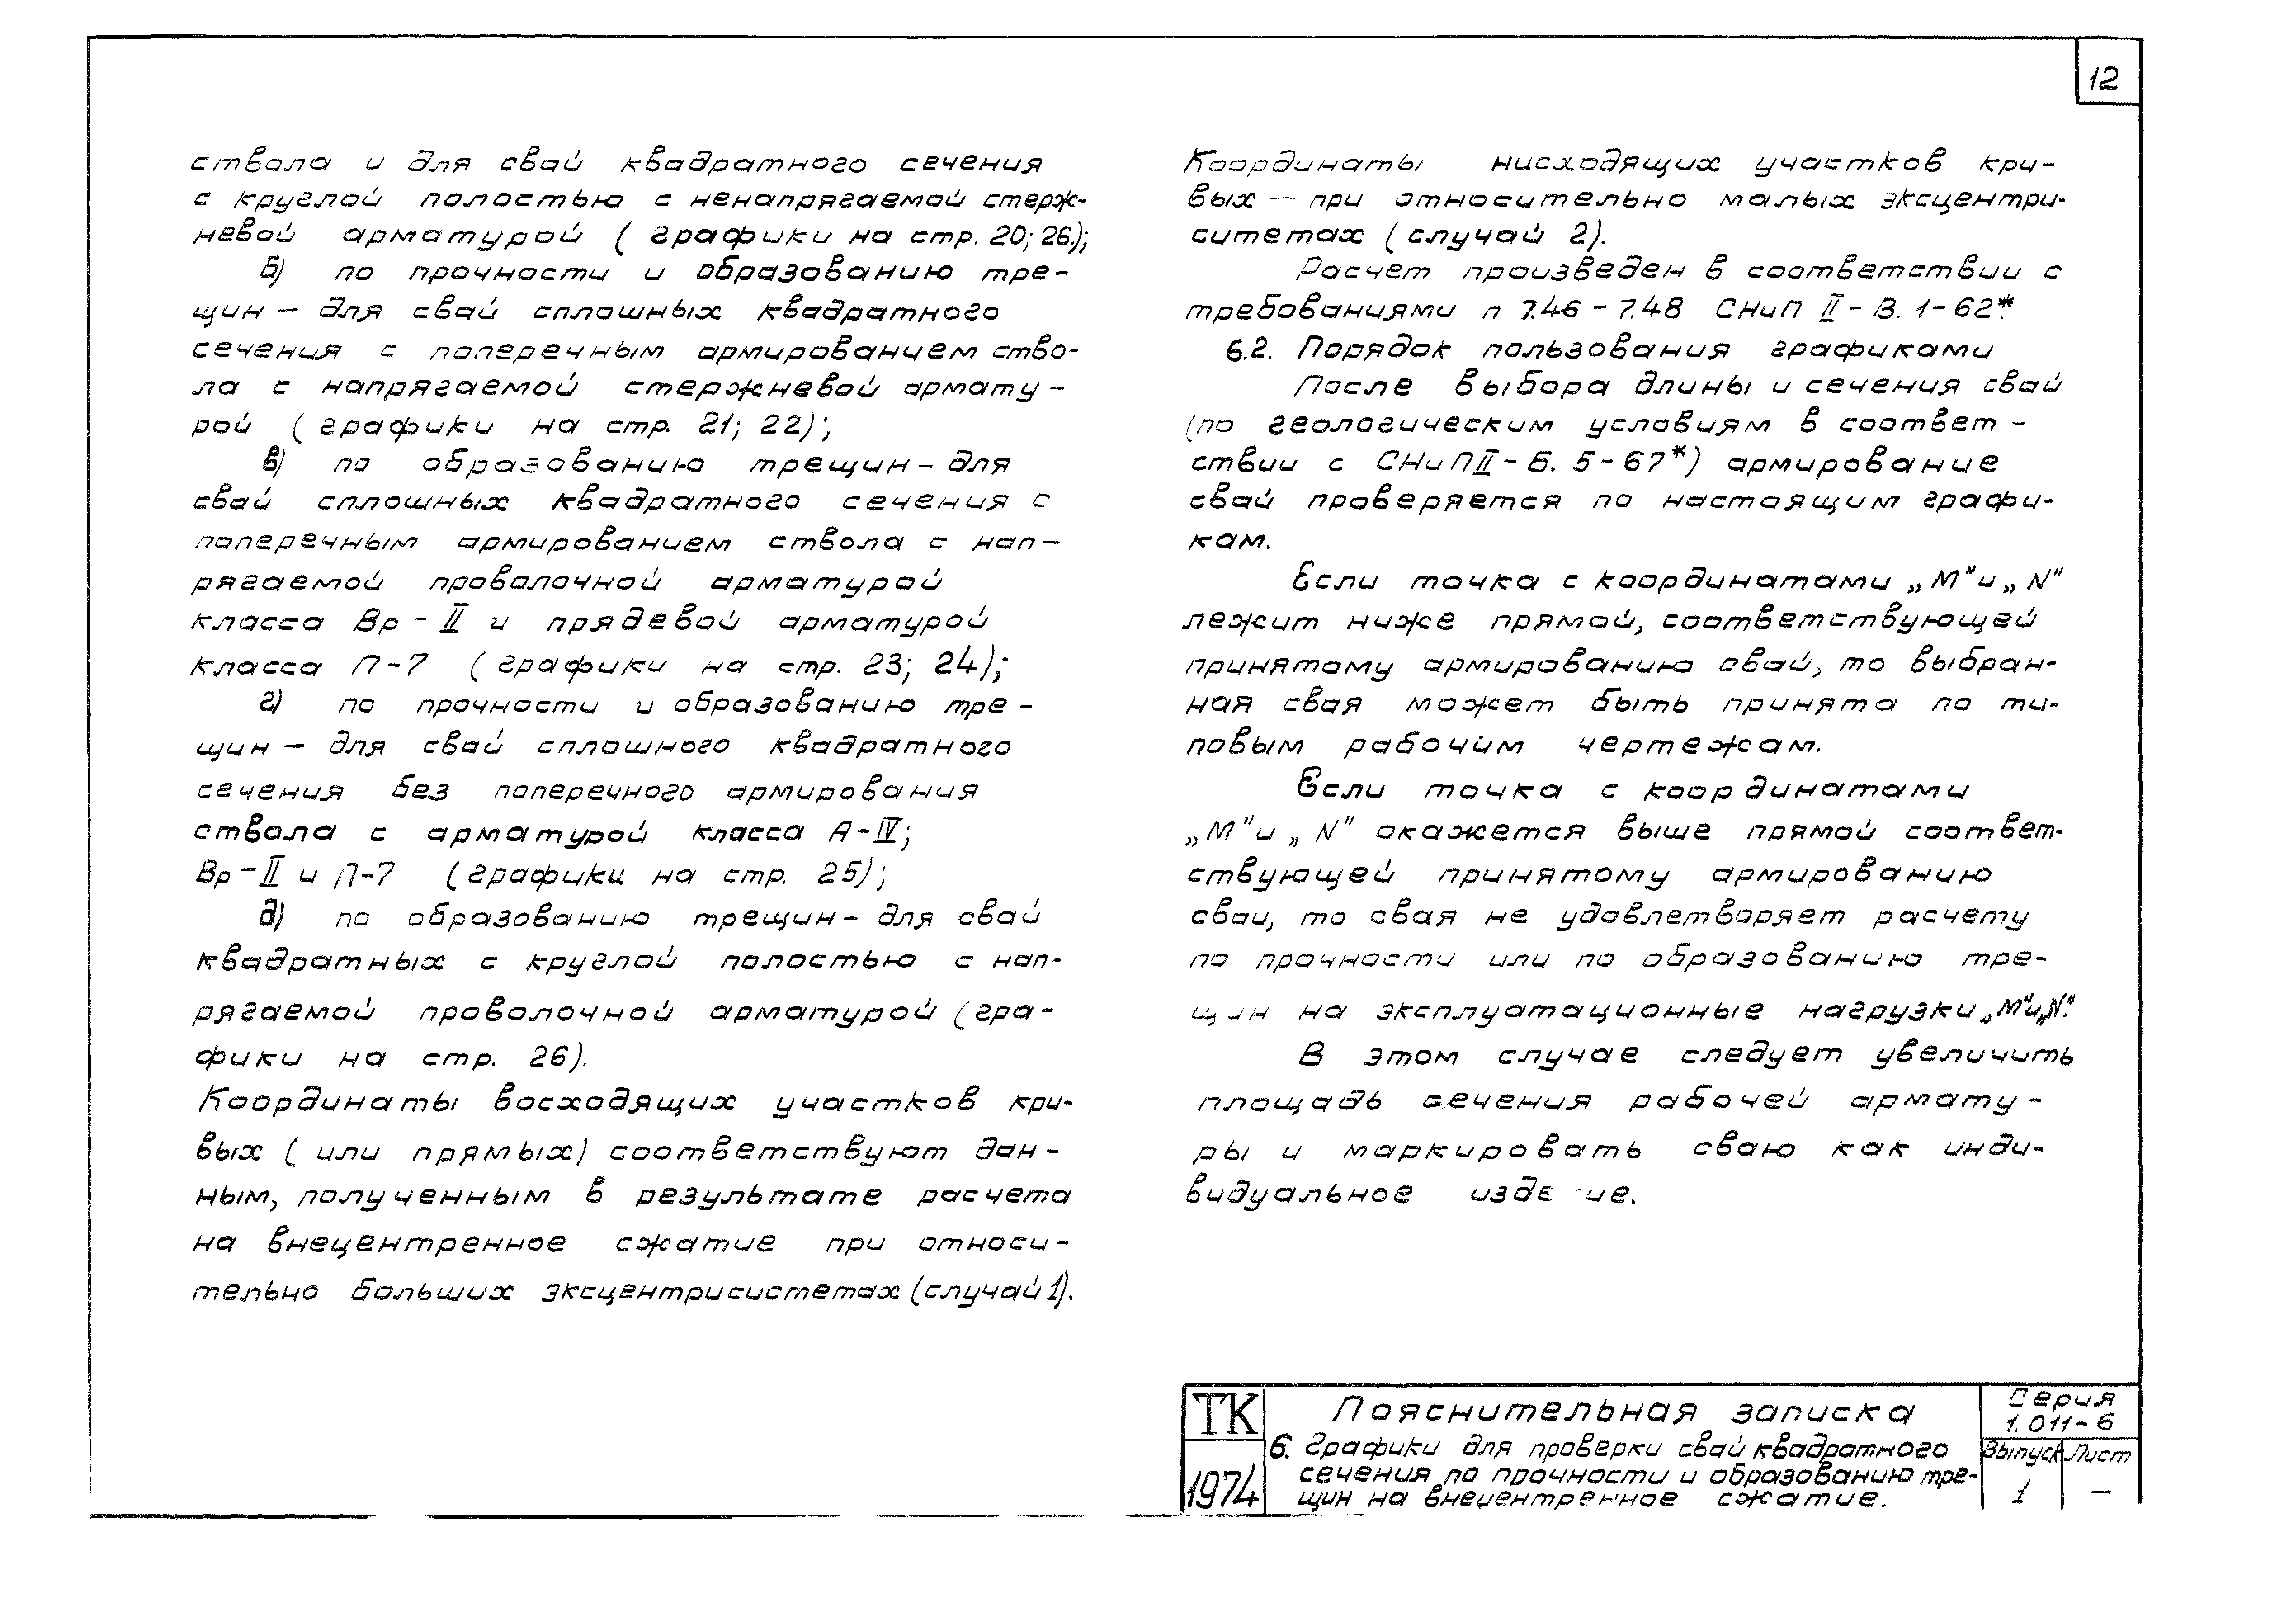 12
ствола и для свай квадратного сечения
с круглой полостью с ненапрягаемой стерж-
невой арматурой (графики на стр. 20; 26.);
б) по прочности и образованию тре-
щин - для свай сплошных квадратного
сечения с поперечным армированием ство-
ла с напрягаемой стержневой армату-
рой (графики на стр. 21; 22);
в) по образованию трещин - для
свай сплошных квадратного сечения с
поперечным армированием ствола с нап-
рягаемой проволочной арматурой
класса Вр-II и прядевой арматурой
класса П-7 (графики на стр. 23; 24.);
г) по прочности и образованию тре-
щин - для свай сплошного квадратного
сечения без поперечного армирования
ствола с арматурой класса А-IV;
Вр-II и П-7 (графики на стр. 25);
д) по образованию трещин - для свай
квадратных с круглой полостью с нап-
рягаемой проволочной арматурой (гра-
фики на стр. 26).
Координаты восходящих участков кри-
вых (или прямых) соответствуют дан-
ным, полученным в результате расчета
на внецентренное сжатие при относи-
тельно больших эксцентрисистетах (случай 1).
Координаты нисходящих участков кри-
вых — при относительно малых эксцентри-
ситетах (случай 2).
Расчет произведен в соответствии с
требованиями п 7.46 - 7.48 СНиП II-В. 1-62*.
6.2. Порядок пользования графиками
После выбора длины и сечения свай
(по геологическим условиям в соответ-
ствии с СНиП II-Б. 5-67*) армирование
свай проверяется по настоящим графи-
кам.
Если точка с координатами „М" и „N"
лежит ниже прямой, соответствующей
принятому армированию свай, то выбран-
ная свая может быть принята по ти-
повым рабочим чертежам.
Если точка с координатами
„М" и „N" окажется выше прямой соответ-
ствующей принятому армированию
сваи, то свая не удовлетворяет расчету
по прочности или по образованию тре-
щин на эксплуатационные нагрузки „М" и „N".
В этом случае следует увеличить
площадь сечения рабочей армату-
ры и маркировать сваю как инди-
видуальное изделие.
ТК
1974
Пояснительная записка
6. Графики для проверки свай квадратного
сечения по прочности и образованию тре-
щин на внецентренное сжатие.
Серия
1.011-6
Выпуск Лист
1 —